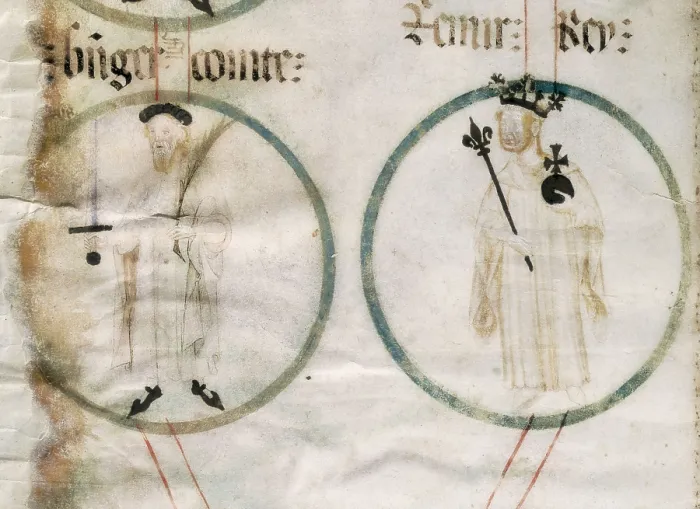 bn̄ger comte:
Remir: Rey: